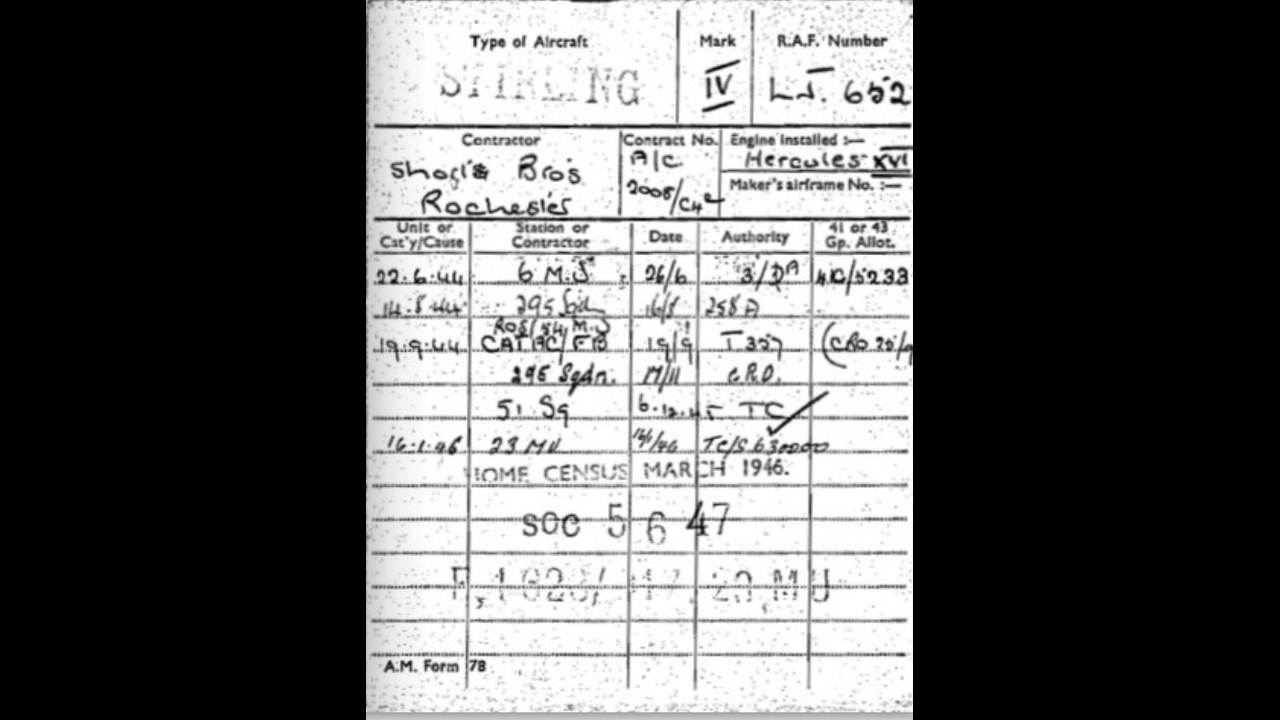 Type of Aircraft Mark R.A.F. Number
STIRLING IV LJ. 652
Contractor Contract No. Engine installed :—
A/C Hercules XVI
Bros Maker's airframe No. :—
Rochester 2008/C4
Unit or Cat'y/Cause Station or Contractor Date Authority 41 or 43 Gp. Allot.
22.6.44 6 M.U 26/6 41C/5233
14.8.44 295 Sqdn 16/8 258 A
19.9.44 CAT AC/FB 19/9 T 357
Sqdn. 17/11 C.R.D.
51 Sq 6.12.45 TC
16.1.46 23 MU TC/S
HOME CENSUS MARCH 1946.
SOC 5 6 47
23 MU
A.M. Form 78